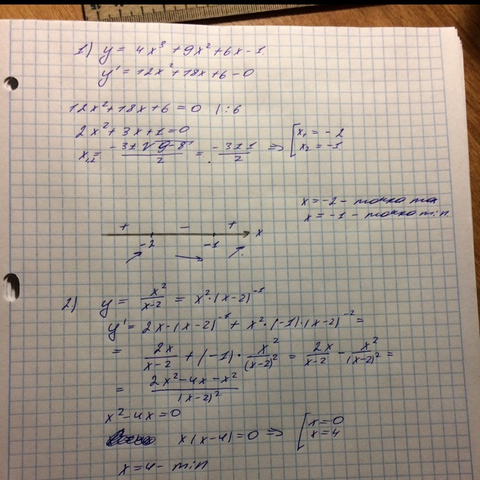 1) y = 4x³ + 9x² + 6x - 1
y' = 12x² + 18x + 6 - 0
12x² + 18x + 6 = 0 | :6
2x² + 3x + 1 = 0
x₁,₂ = (-3 ± √(9-8))/2 = (-3 ± 1)/2 ⇒ [x₁ = -2
x₂ = -1
x = -2 - точка max
x = -1 - точка min
+ - + x
-2 -1
2) y = x²/(x-2) = x²·(x-2)⁻¹
y' = 2x·(x-2)⁻¹ + x²·(-1)·(x-2)⁻² =
= 2x/(x-2) + (-1)·x²/(x-2)² = 2x/(x-2) - x²/(x-2)² =
= (2x² - 4x - x²)/(x-2)²
x² - 4x = 0
x(x-4) = 0 ⇒ [x = 0
x = 4
x = 4 - min